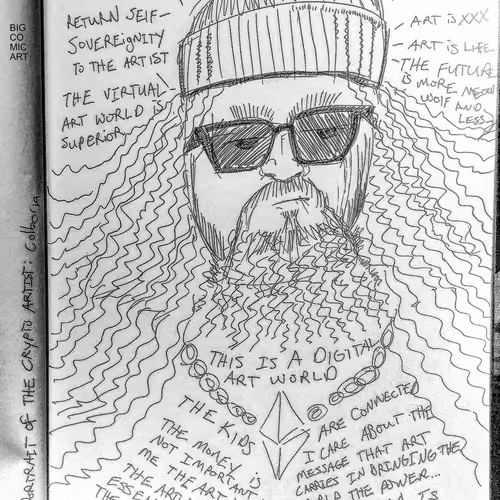 BIG
CO
MIC
ART
RETURN SELF-
SOVEREIGNITY
TO THE ARTIST
THE VIRTUAL
ART WORLD IS
SUPERIOR
ART is XXX
ART is LIFE
THE FUTURE
is MORE MEOW
WOLF AND
LESS
PORTRAIT OF THE CRYPTO ARTIST: Colborn
THIS IS A DIGITAL
ART WORLD
THE KIDS
ARE CONNECTED
THE MONEY IS
NOT IMPORTANT
ME THE ART
THE ART
ESSEN
THE
I CARE ABOUT THE
MESSAGE THAT ART
CARRIES IN BRINGING THE
THE POWER...